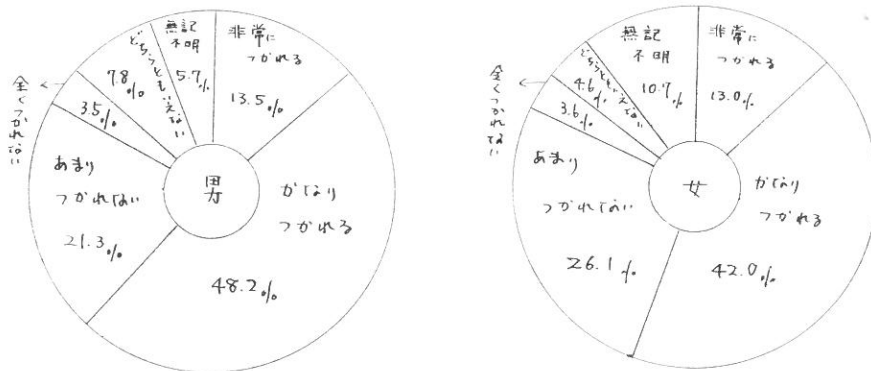 男
非常に
つかれる
13.5%
かなり
つかれる
48.2%
あまり
つかれない
21.3%
全くつかれない
3.5%
どちらともいえない
7.8%
無記
不明
5.7%
女
非常に
つかれる
13.0%
かなり
つかれる
42.0%
あまり
つかれてない
26.1%
全くつかれてない
3.6%
どちらともいえない
4.6%
無記
不明
10.7%